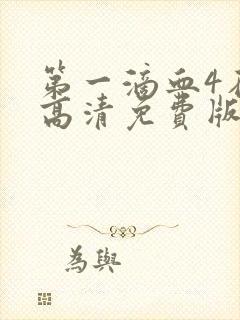 第一滴血4在
高清免费版
為與